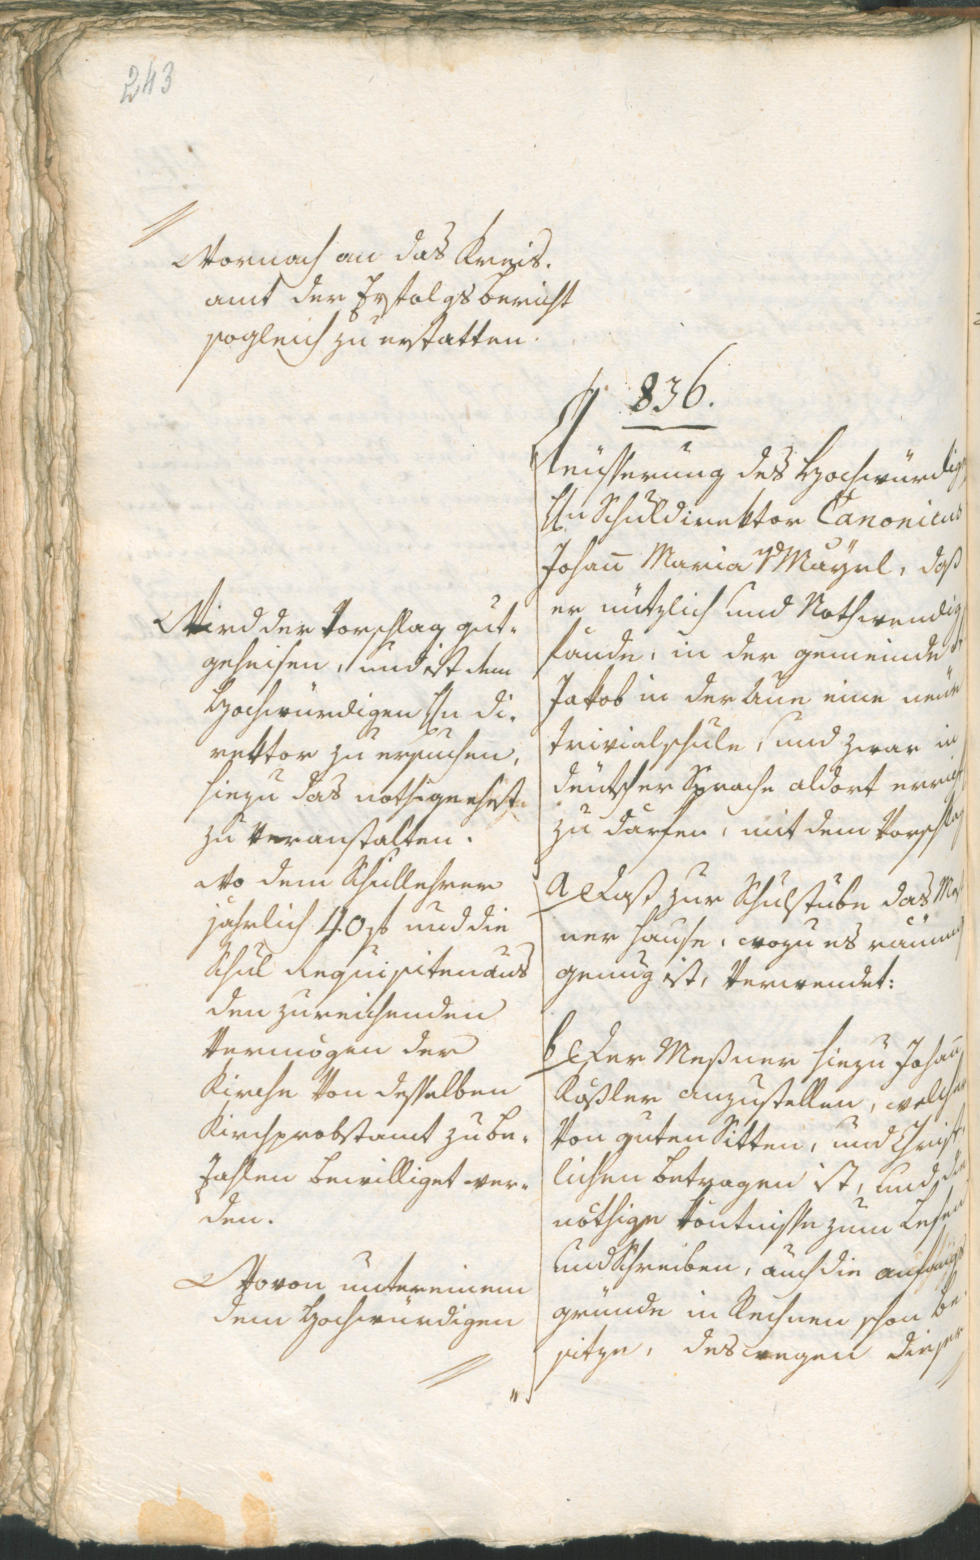 243
Wornach an das Kreis-
amt der Erfolgsbericht
sogleich zu erstatten.
836.
Aeüsserung des Hochwürdig
Hn Schuldirektor Canonicus
Johann Maria v Mayrl, daß
er nützlich und Nothwendig
fande, in der gemeinde
Jakob in der Aue eine neüe
trivialschule, und zwar in
deütscher Sprache aldort errich
zu dürfen, mit dem Vorschlag
a Daß zur Schulstube das Meß
ner hause, wozu es räumlich
genug ist, Verwendet:
b Der Meßner hiezu Johann
Koßler anzustellen, welcher
Von guten Sitten, und Christ
lichen betragen ist, und die
nöthige Köntnisse zum Lesen
und Schreiben, auch die anfangs
gründe in Rechnen schon be
sitze, deswegen dieser
Wird der Vorschlag gut-
geheisen, und ist dem
Hochwürdigen Hn Di-
rektor zu ersuchen,
hiezu das nothige
zu Veranstalten.
Wo dem Schullehrer
jährlich 40 f und die
Schul Requisiten aus
den zureichenden
Vermögen der
Kirche Von desselben
Kirchprobstamt zu be-
zahlen bewilliget wer-
den.
Wovon untereinem
dem Hochwürdigen